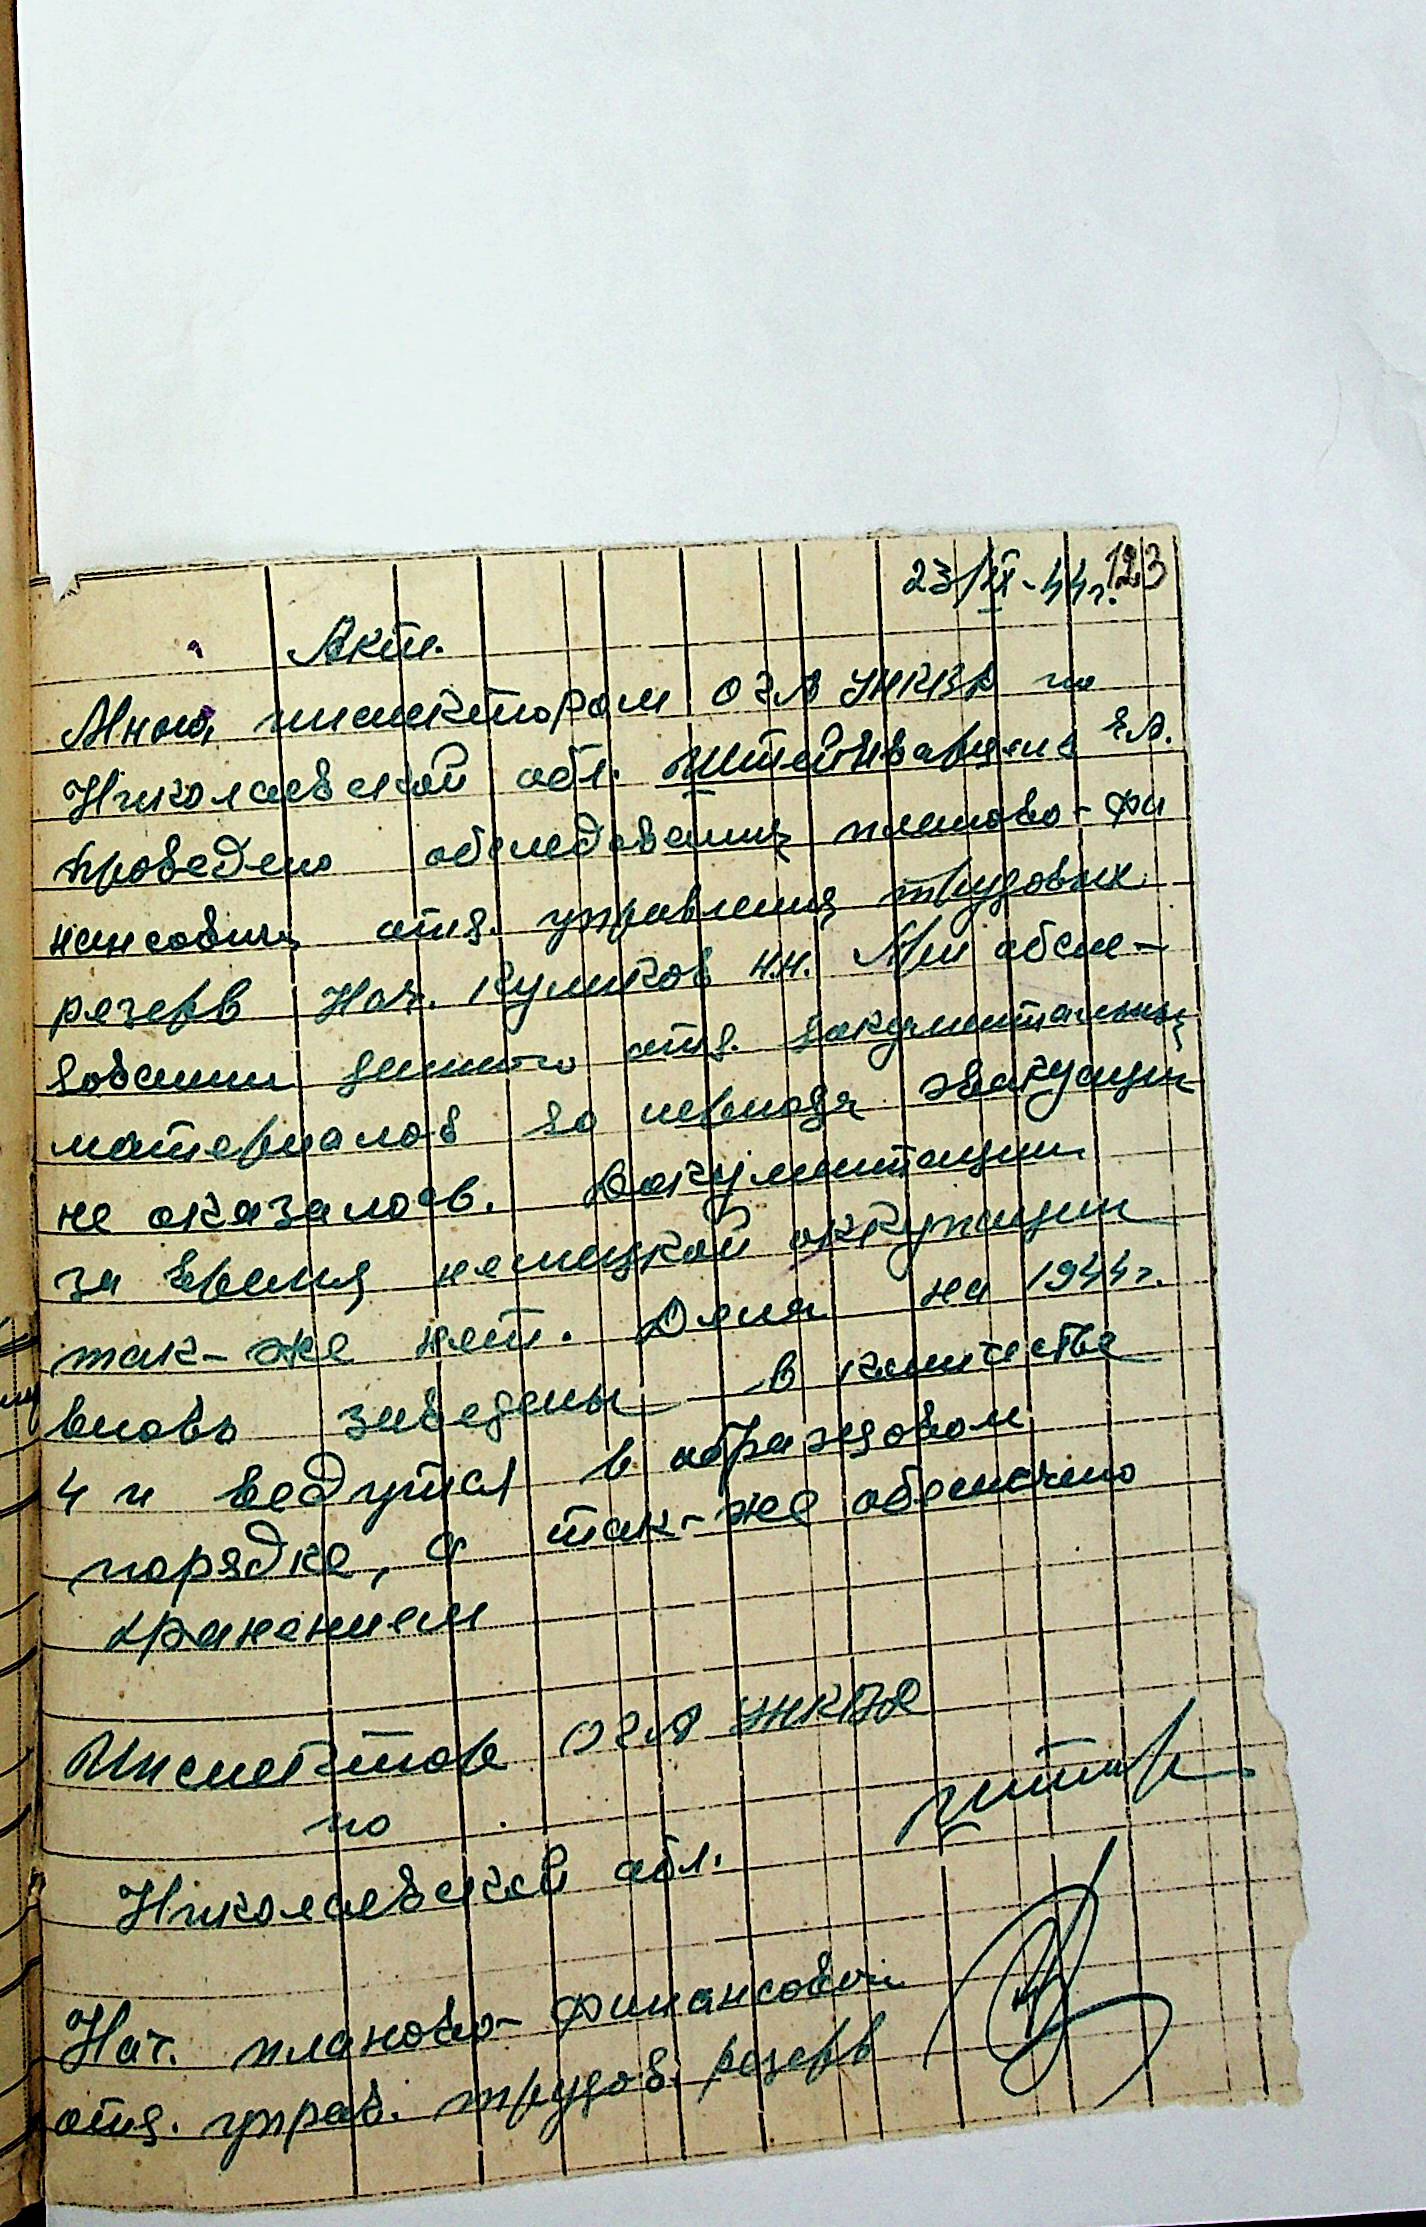 123
23/XI-44г.
Акт.
Мною, инспектором ОГА УНКВД по
Николаевской обл. Штейнварг Е.А.
проведено обследования планово-фи
нансовый отд. управления трудовых
резерв Нач. Куликов Н.Н. При обсле-
довании данного отд. документальных
материалов до периода эвакуации
не оказалось. Документации
за время немецкой оккупации
так-же нет. Дела на 1944г.
вновь заведены в количестве
4 и ведутся в образцовом
порядке, а так-же обеспечено
хранением
Инспектор ОГА УНКВД
по
Николаевской обл.
Нач. планово-финансовый
отд. управ. трудов. резерв